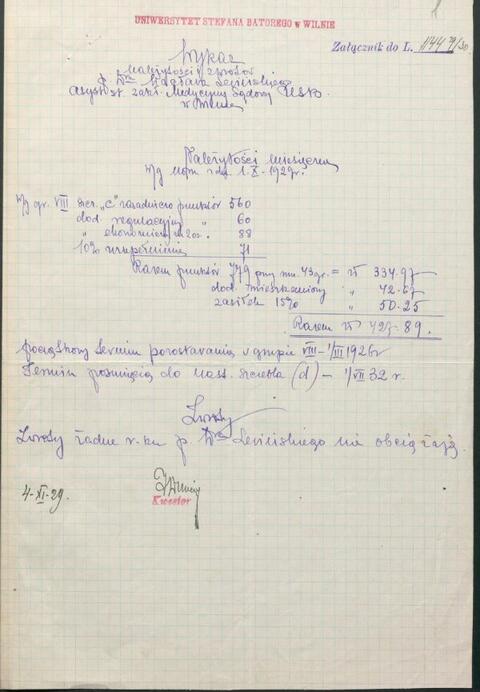 UNIWERSYTET STEFANA BATOREGO w WILNIE
Załącznik do L. 1144 79/30
Wykaz
Należytości i zwrotów
p. Dra
asyst. st. zakł. Medycyny Sądowej USB.
w Wilnie
Należytości miesięczne
Wg upos. z dn. 1.X-1929r.
Wg gr. VIII szcz. „C" zasadnicze punktów 560
dod. regulacyjny „ 60
„ ekonomiczn. 2 os. „ 88
10% uzupełnienie 71
Razem punktów 779 przy mn. 43 gr. = zł 334.97
dod. mieszkaniowy „ 42.67
zasiłek 15% „ 50.25
Razem zł 427.89.
Początkowy termin pozostawania w grupie VIII – 1/III 1926r
Termin posunięcia do nast. szczebla (d) – 1/VII 32 r.
Zwroty
Zwroty żadne r-ku p. Dra nie obciążają.
4-XI-29.
Kwestor